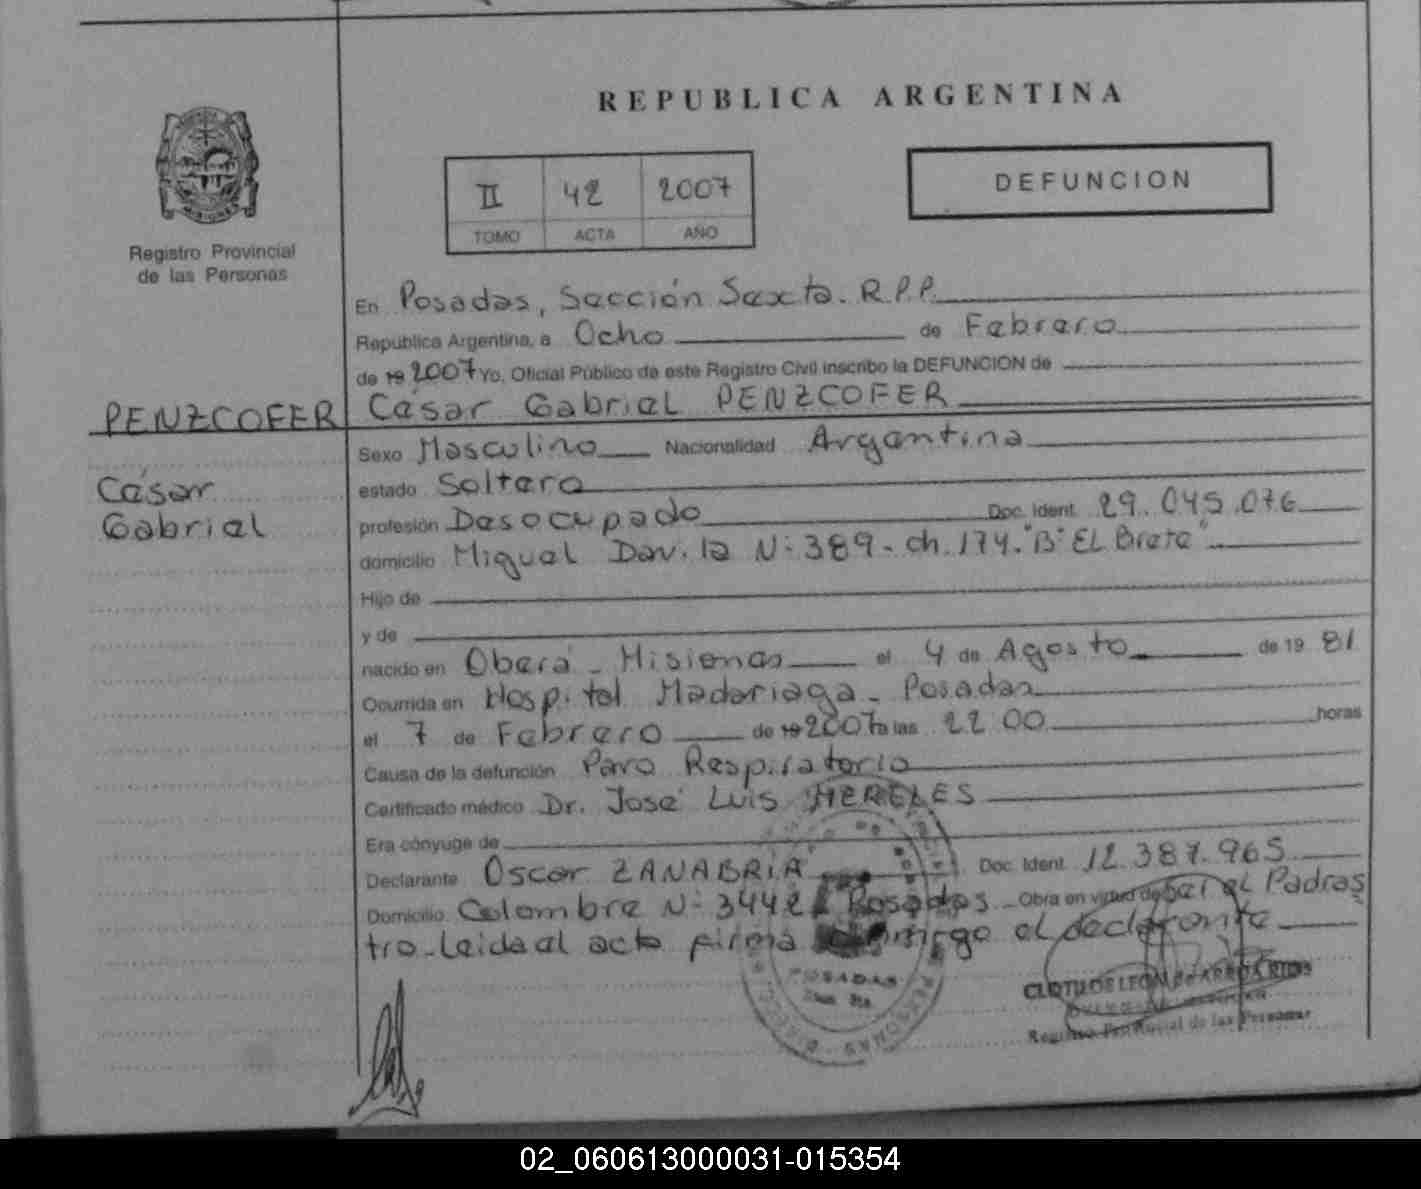 REPUBLICA ARGENTINA
II 42 2007
TOMO ACTA AÑO
DEFUNCION
MISIONES
Registro Provincial
de las Personas
En Posadas, Sección Sexta. R.P.P.
República Argentina, a Ocho de Febrero
de 19 2007 Yo, Oficial Público de este Registro Civil inscribo la DEFUNCION de
PENZCOFER César Gabriel PENZCOFER
Sexo Masculino Nacionalidad Argentina
César estado Soltero
Gabriel profesión Desocupado Doc. Ident. 29.045.076
domicilio Miguel Davila N: 389 - ch. 174. "B° El Brete"
Hijo de
y de
nacido en Oberá - Misiones el 4 de Agosto de 19 81
Ocurrida en Hospital Madariaga - Posadas
el 7 de Febrero de 19 2007 a las 22:00 horas
Causa de la defunción Paro Respiratorio
Certificado médico Dr. José Luis MERELES
Era cónyuge de
Declarante Oscar ZANABRIA Doc. Ident. 12.387.965
Domicilio Colombre N: 3442 Posadas Obra en virtud de ser el Padras
tro. Leida al acta firma el declarante
POSADAS
Registro Provincial de las Personas
02_060613000031-015354